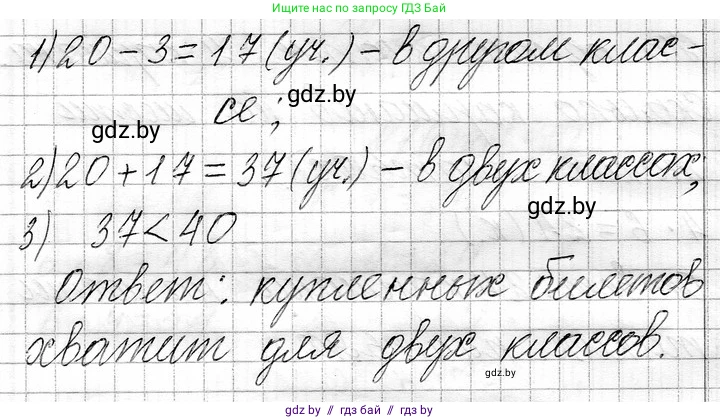 Нашли ещё больше по запросу ГДЗ Бай
1) 20 - 3 = 17 (уч.) - в другом клас-
се;
gdz.by
gdz.by
2) 20 + 17 = 37 (уч.) - в двух классах;
gdz.by
3) 37 < 40
Ответ: купленных билетов
хватит для двух классов.
gdz.by
gdz.by // гдз бай // gdz.by